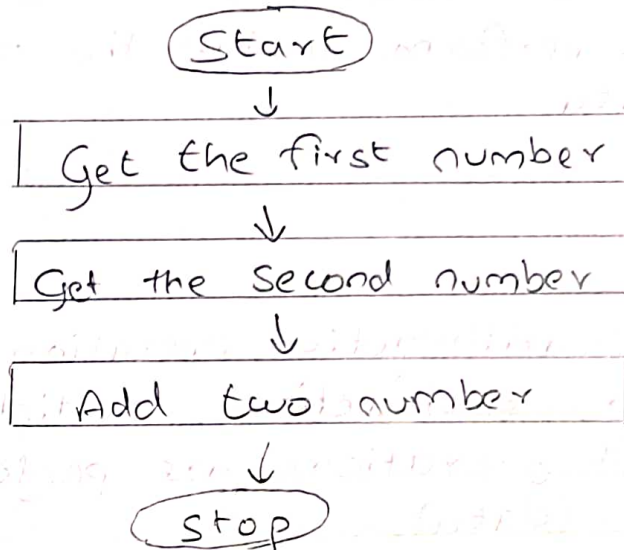 Start
Get the first number
Get the second number
Add two number
Stop